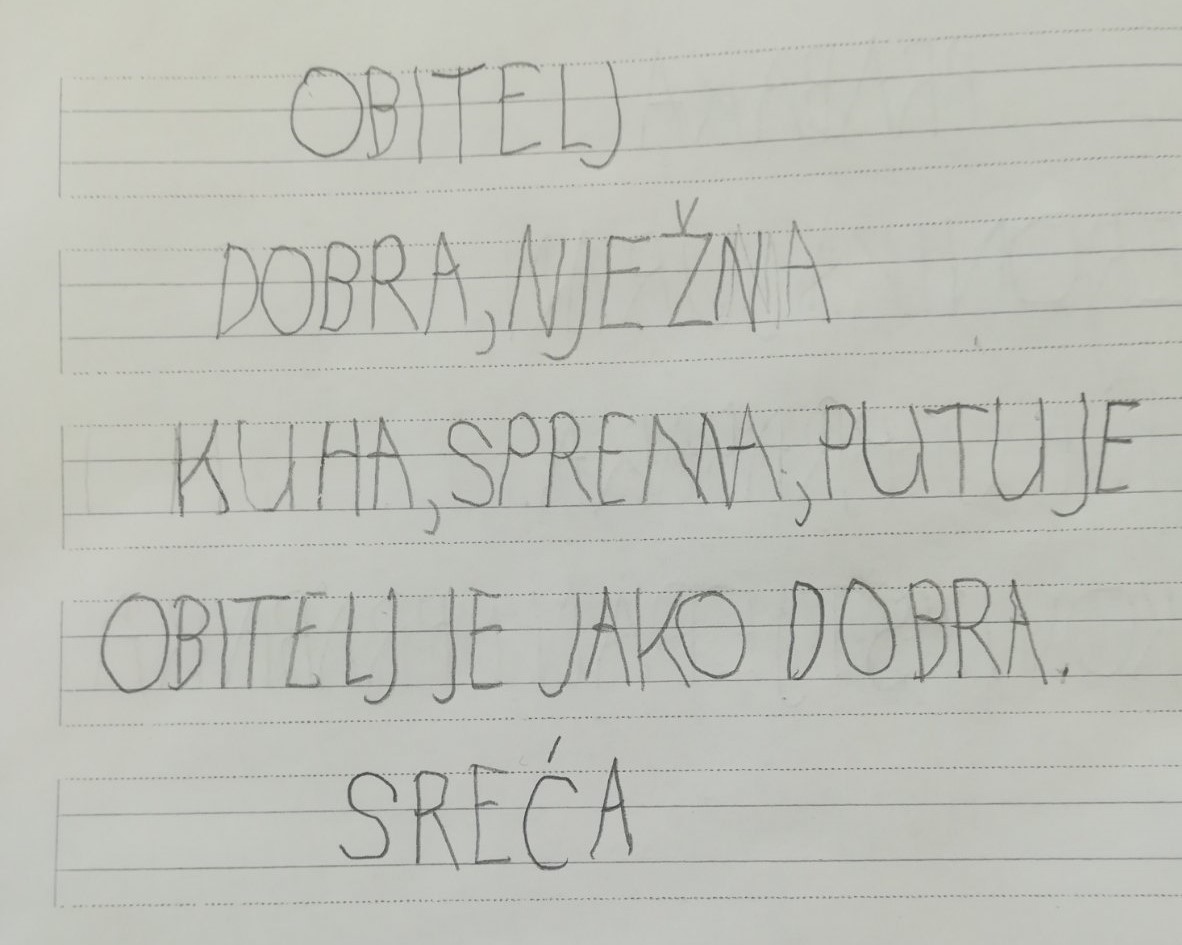 OBITELJ
DOBRA, NJEŽNA
KUHA, SPREMA, PUTUJE
OBITELJ JE JAKO DOBRA.
SREĆA